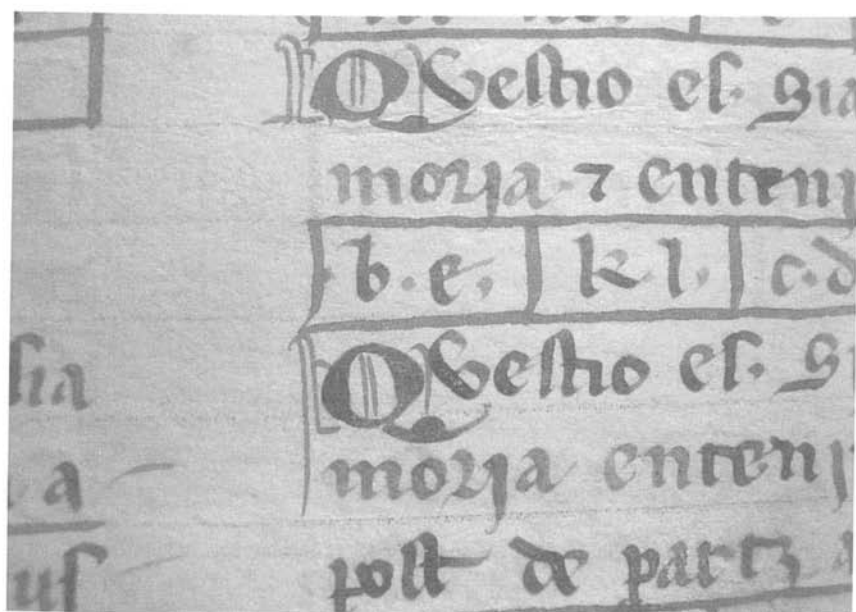 Qvestio es. Sia
moria. ⁊ enteni
.b.e. k.l. c.d
Qvestio es. S
moria enteni
post de partz a
sia
a
us